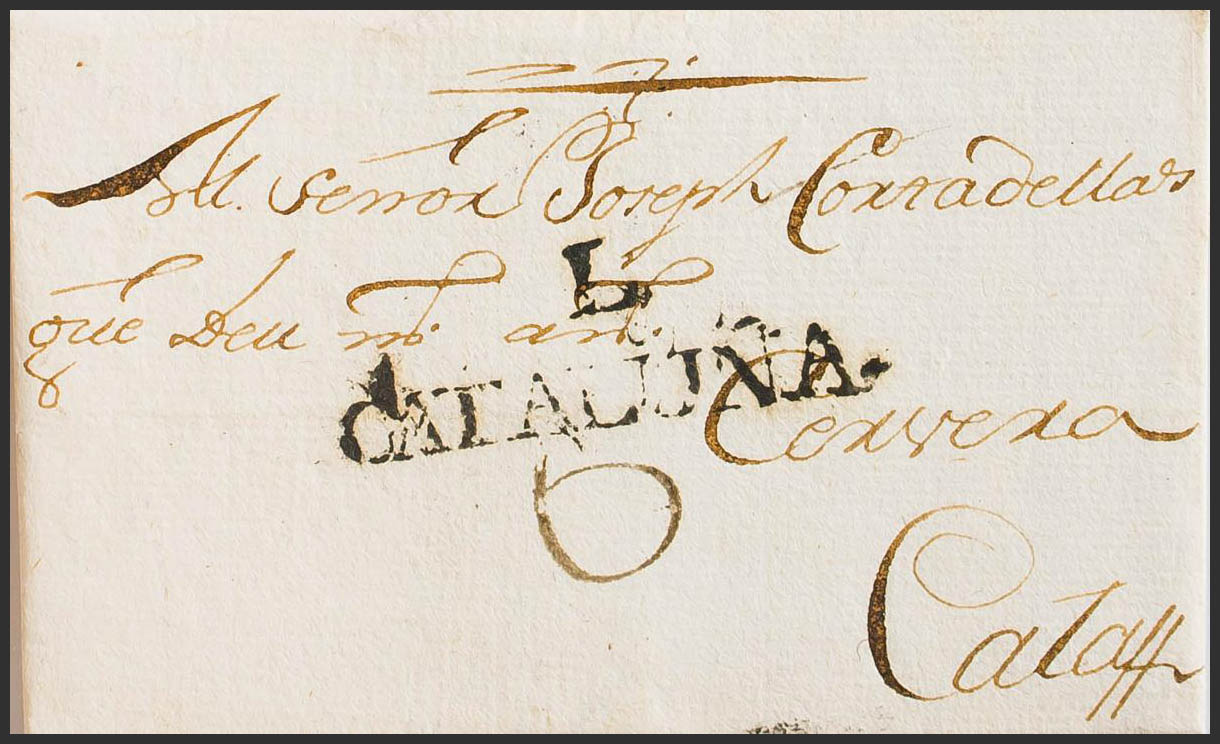 Al Señor Joseph Cortadellas
que Deu m.s an.s
L
CATALUÑA.
Cervera
6
Calaff